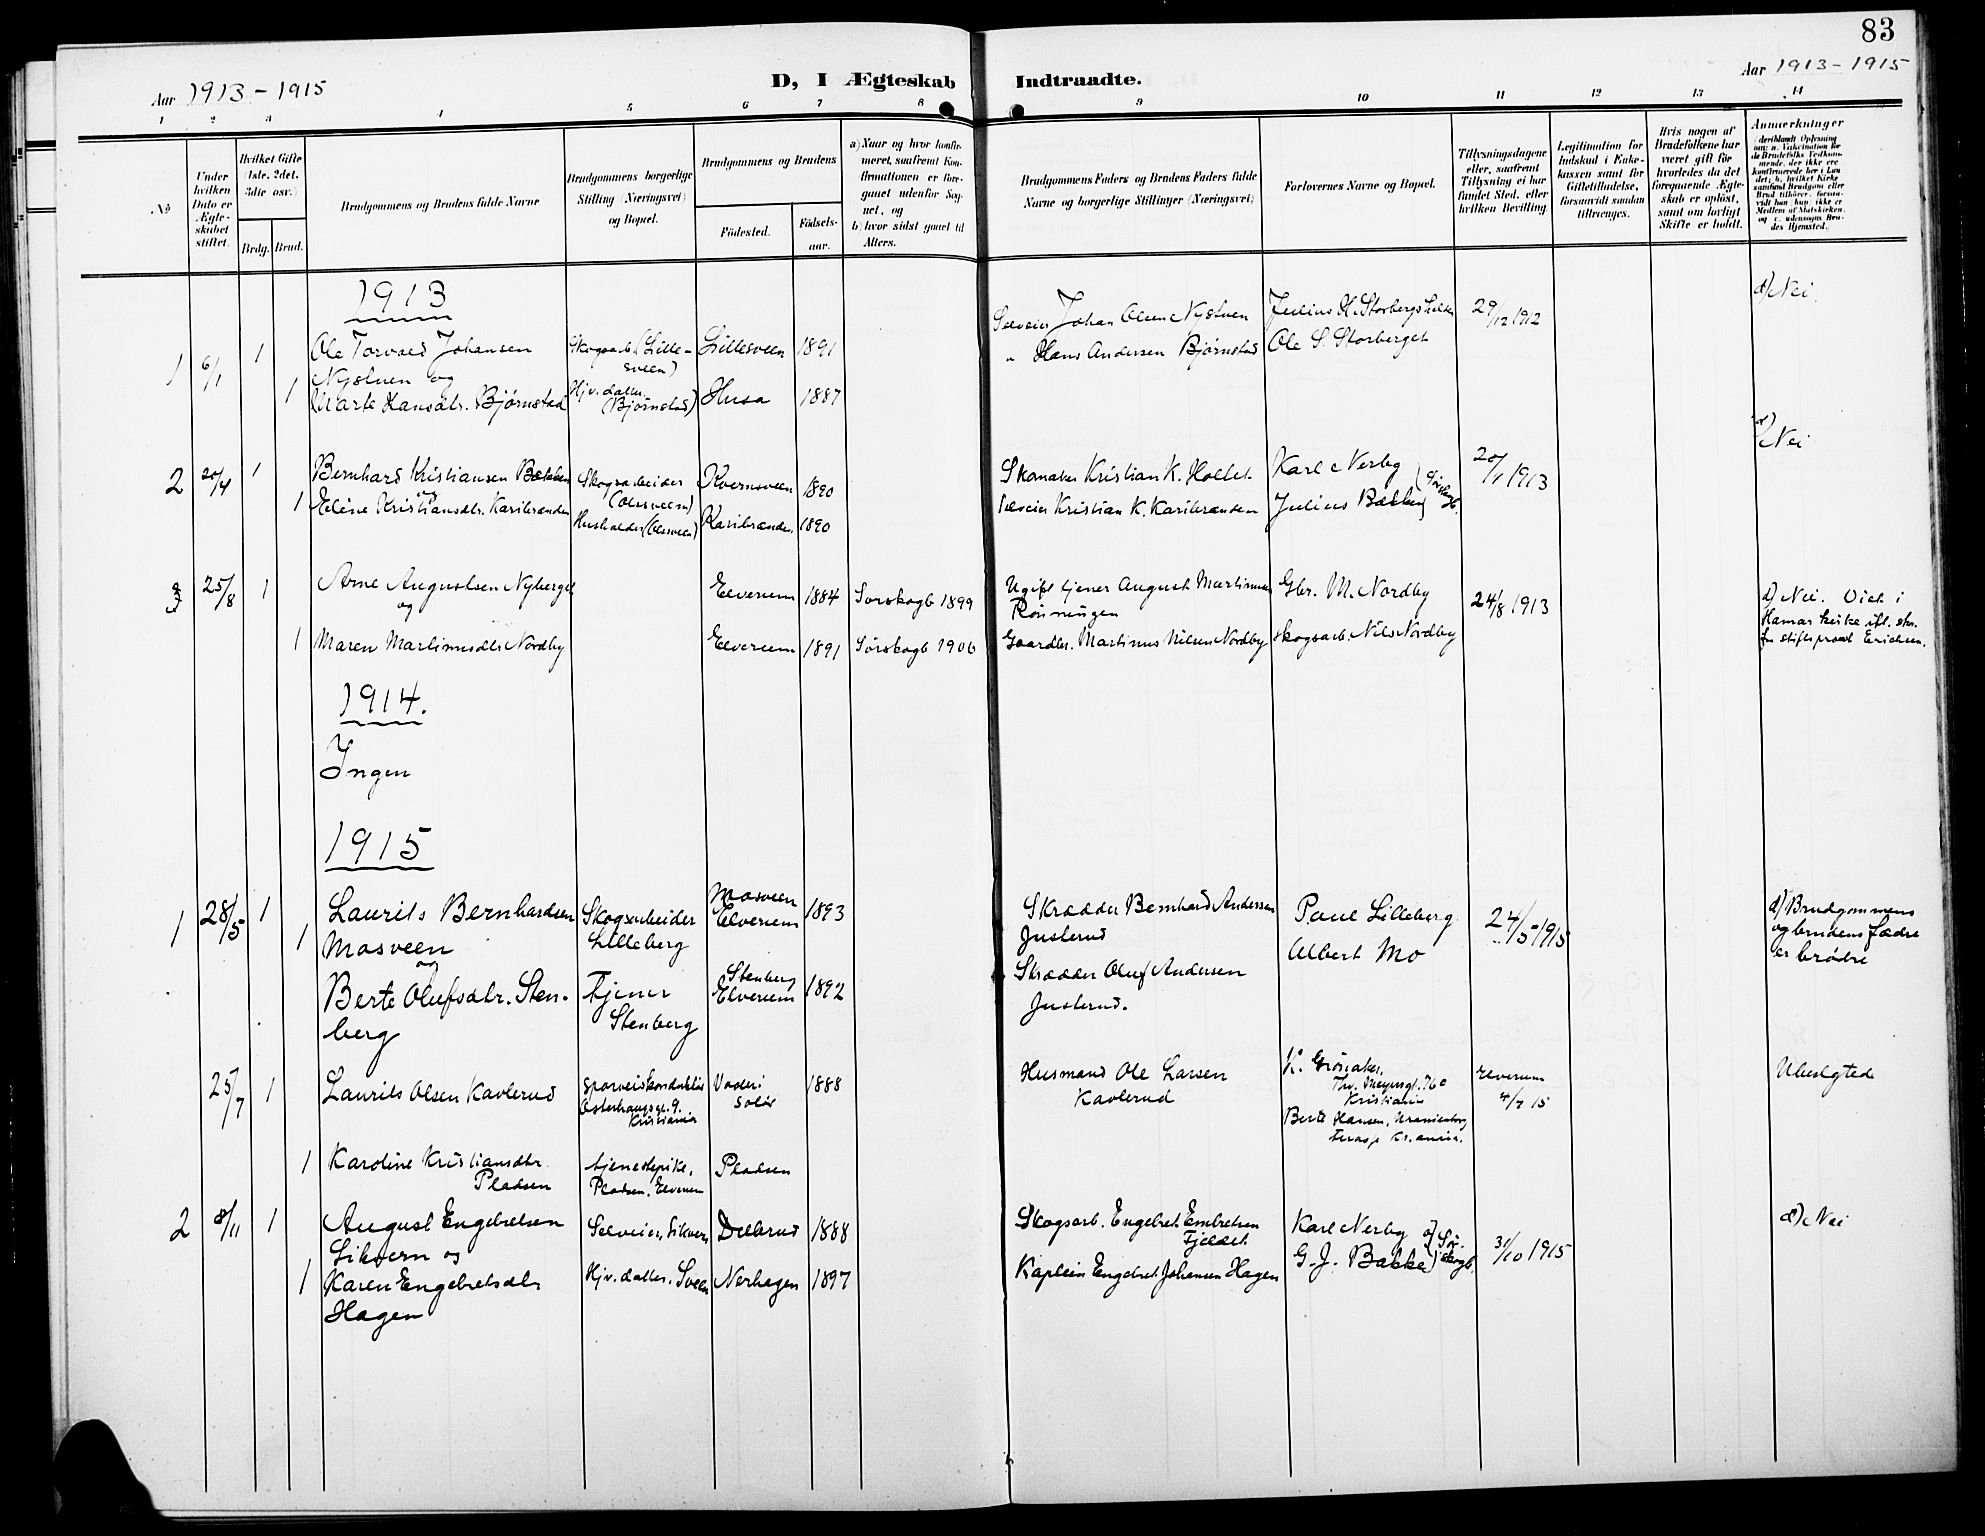 83
Aar 1913 - 1915
D, I Ægteskab Indtraadte.
Aar 1913 - 1915
1 2 3 4 5 6 7 8 9 10 11 12 13 14
No
Under hvilken Dato er Ægteskabet stiftet.
Hvilket Gifte (1ste, 2det, 3die osv.)
Brdg. Brud.
Brudgommens og Brudens fulde Navne
Brudgommens borgerlige Stilling (Næringsvei) og Bopæl.
Brudgommens og Brudens
Fødested.
Fødselsaar.
a) Naar og hvor konfirmeret, saafremt Konfirmationen er foregaaet udenfor Sognet, og
b) hvor sidst gaaet til Alters.
Brudgommens Faders og Brudens Faders fulde Navne og borgerlige Stillinger (Næringsvei)
Forlovernes Navne og Bopæl.
Tillysningsdagene eller, saafremt Tillysning ei har fundet Sted, efter hvilken Bevilling.
Legitimation for Indskud i Enkekassen samt for Giftetilladelse, forsaavidt saadan tiltrænges.
Hvis nogen af Brudefolkene har været gift før hvorledes da det foregaaende Ægteskab er opløst, samt om lovligt Skifte er holdt.
Anmærkninger
1913
1 6/1 1 Ole Torvald Johansen Skogsarb. (Lille- Lillesveen 1891
Nystuen og sveen)
1 Marte Hansdtr. Bjørnstad Hjv. datter (Bjørnstad) Husa 1887
Selveier Johan Olsen Nystuen Julius H. Storbergshelden 29/12 1912 d) Nei.
" Hans Andersen Bjørnstad Ole S. Storberget
2 20/4 1 Bernhard Kristiansen Bakken Skogsarbeider Kvernsveen 1890
og (Olesveen)
1 Eline Kristiansdtr. Karibranden Husholder (Olesveen) Karibranden 1890
Kristian K. Hollet Karl Nerby 20/1 1913 d) Nei
Selveier Kristian K. Karibranden Julius Bakken
3 25/8 1 Arne Augustsen Nyberget Elverum 1884 Sørskogb 1899
og
1 Maren Martinusdtr Nordby Elverum 1891 Sørskogb 1906
Ugift tjener August Martinusen Gbr. M. Nordby 24/8 1913 d) Nei. Viet i
Rønningen Hamar kirke ifl. skr.
Gaardbr. Martinus Nilsen Nordby skogsarb. Nils Nordby fra stiftsprost Erichsen.
1914.
Ingen
1915
1 28/5 1 Laurits Bernhardsen Skogsarbeider Mosveen Elverum 1893
1 Mosveen Lilleberg
og
Berte Olufsdtr. Sten- Tjener Stenberg Elverum 1892
berg Stenberg
Skrædder Bernhard Andersen Paul Lilleberg 24/5 1915 d) Brudgommens
Justerud Albert Mo og brudens fædre
Skrædder Oluf Andersen er brødre
Justerud.
25/7 1 Laurits Olsen Kavlerud Sporveiskonduktør Vaaler i 1888
Osterhausgt. 9. Solør
Kristiania
1 Karoline Kristiansdtr. tjenestepike, Pladsen
Pladsen Pladsen, Elverum
Husmand Ole Larsen K. Grönaker, Elverum Ubeslegtede
Kavlerud Thv. Meyersgt. 76 4/7 15
Kristiania
Berte Hansen, Uranienborg
Terasse Kr.ania.
2 8/11 1 August Engebretsen Selveier, Sikvern Dellerud 1888
Sikvern og
1 Karen Engebretsdtr Hjv. datter, Sveen Nerhagen 1897
Hagen
Skogsarb. Engebret Embretsen Karl Nerby 31/10 1915 d) Nei
Fjeldet
Kaptein Engebret Johansen Hagen G. J. Bakke